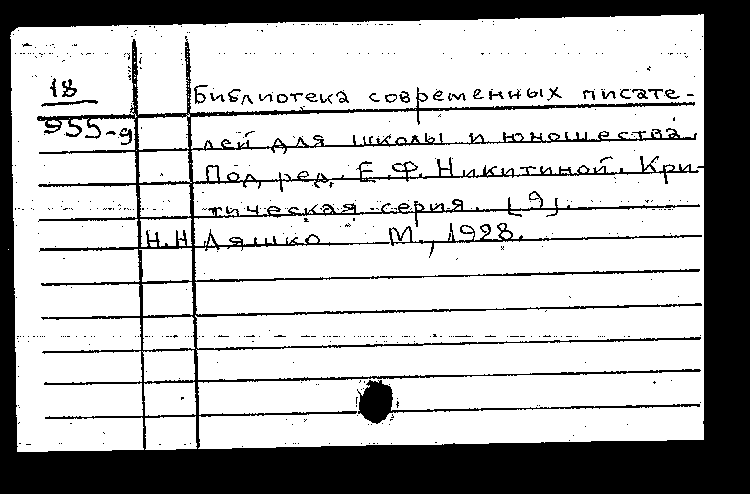 18
955-9
Библиотека современных писате-
лей для школы и юношества.
Под ред. Е.Ф. Никитиной. Кри-
тическая серия. [9].
Н.Н Ляшко М., 1928.